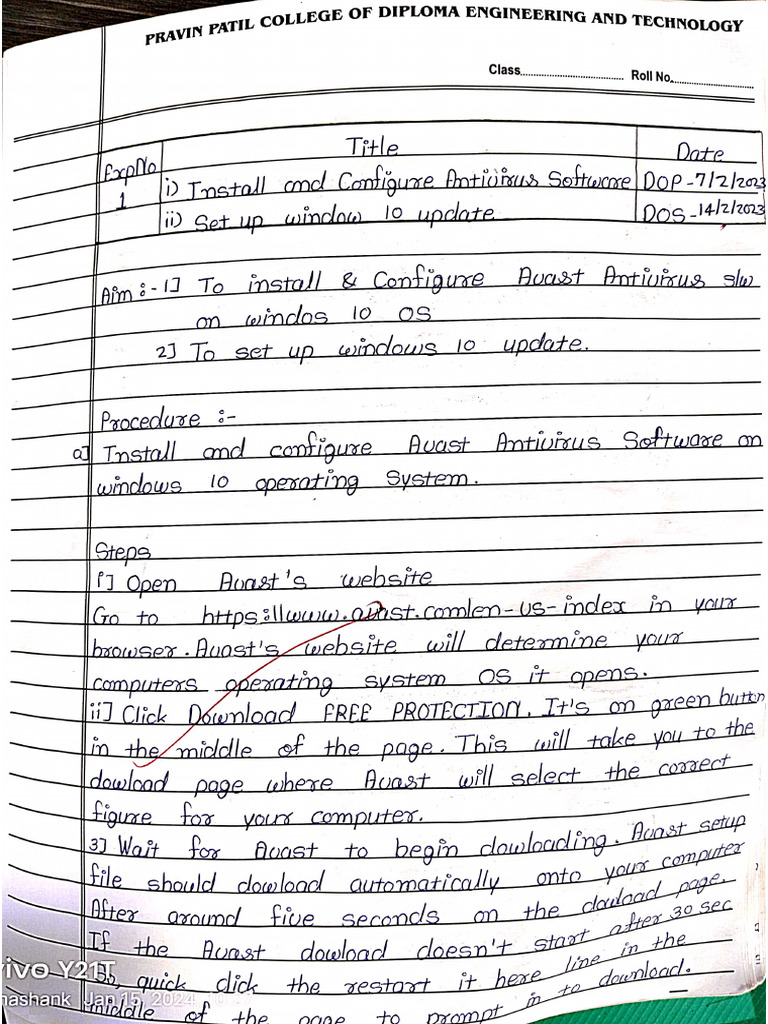 PRAVIN PATIL COLLEGE OF DIPLOMA ENGINEERING AND TECHNOLOGY
Class.............................. Roll No..........................
ExpNo Title Date
1 i) Install and Configure Antivirus Software DOP-7/2/2023
ii) Set up window 10 update DOS-14/2/2023
Aim:-1] To install & Configure Avast Antivirus s/w
on windos 10 OS
2] To set up windows 10 update.
Procedure :-
a] Install and configure Avast Antivirus Software on
windows 10 operating System.
Steps
i] Open Avast's website
Go to https://www.avast.com/en-us-index in your
browser. Avast's website will determine your
computers operating system OS it opens.
ii] Click Download FREE PROTECTION. It's on green button
in the middle of the page. This will take you to the
dowload page where Avast will select the correct
figure for your computer.
3] Wait for Avast to begin dowloading. Avast setup
file should dowload automatically onto your computer
After around five seconds on the dowload page.
If the Avast dowload doesn't start after 30 sec
quick click the restart it here line in the
middle of the page to prompt in to download.
vivo Y21T
hashank Jan 15, 2024